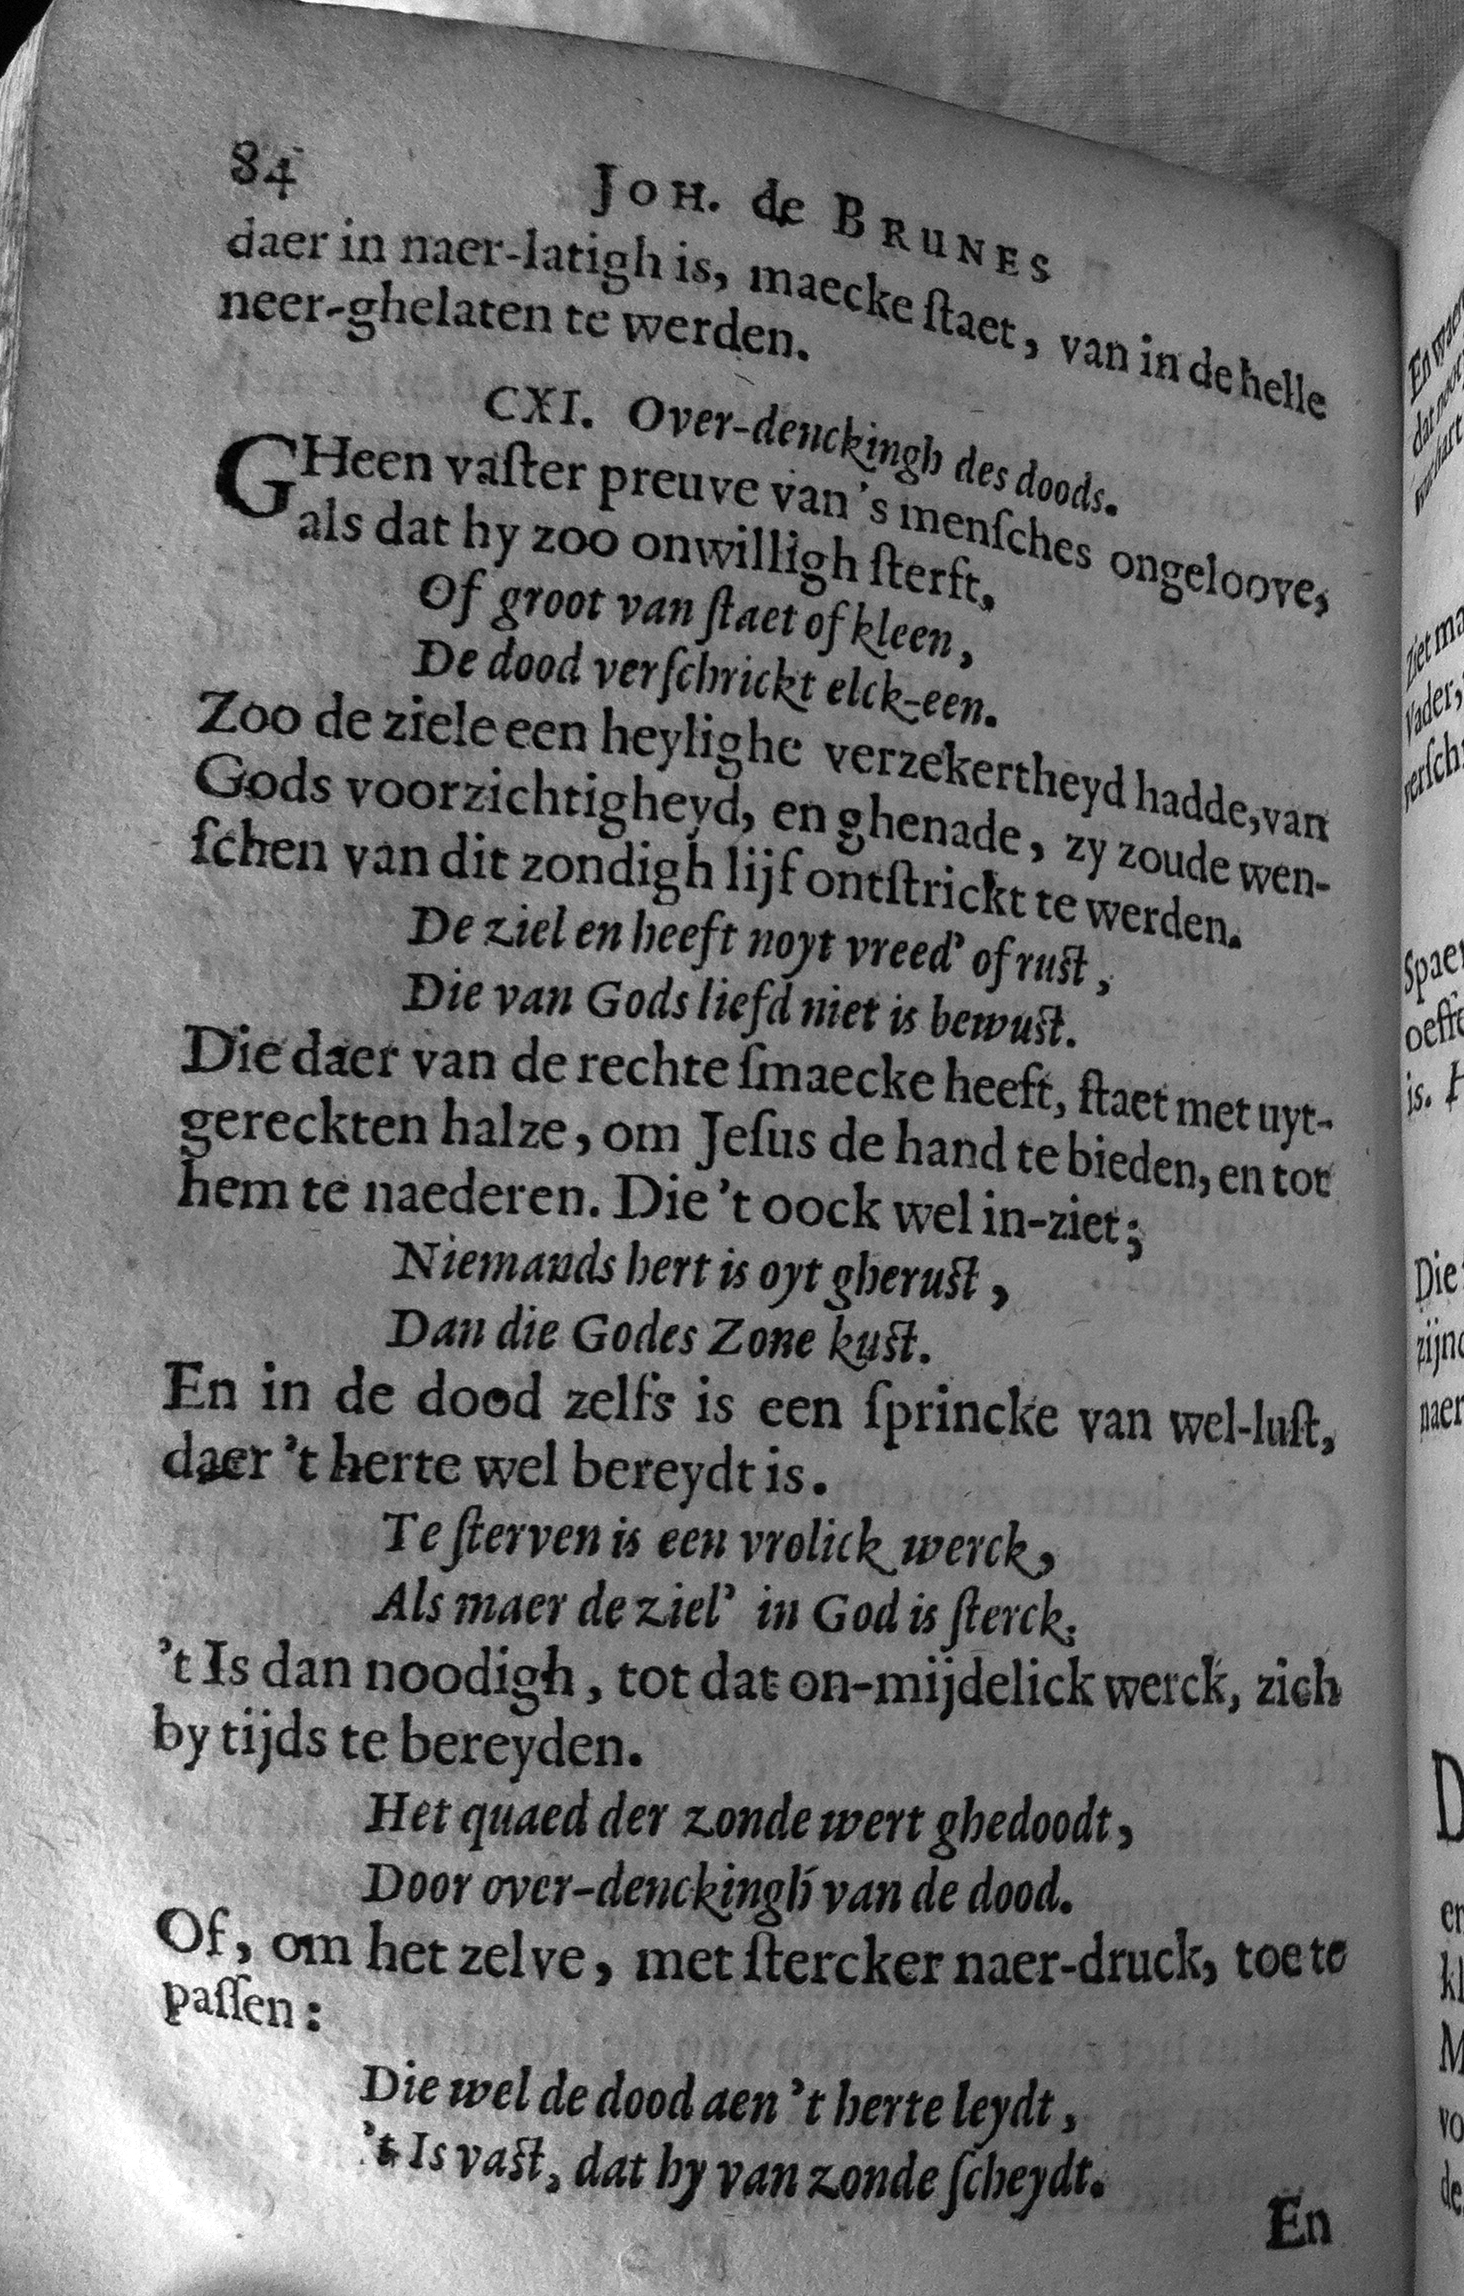 84
JOH. de BRUNES
daer in naer-latigh is, maecke ſtaet, van in de helle
neer-ghelaten te werden.
CXI. Over-denckingh des doods.
GHeen vaſter preuve van 's menſches ongeloove,
als dat hy zoo onwilligh ſterft,
Of groot van ſtaet of kleen,
De dood verſchrickt elck-een.
Zoo de ziele een heylighe verzekertheyd hadde, van
Gods voorzichtigheyd, en ghenade, zy zoude wen-
ſchen van dit zondigh lijf ontſtrickt te werden.
De ziel en heeft noyt vreed' of ruſt,
Die van Gods liefd niet is bewuſt.
Die daer van de rechte ſmaecke heeft, ſtaet met uyt-
gereckten halze, om Jeſus de hand te bieden, en tot
hem te naederen. Die 't oock wel in-ziet;
Niemands hert is oyt gheruſt,
Dan die Godes Zone kuſt.
En in de dood zelfs is een ſprincke van wel-luſt,
daer 't herte wel bereydt is.
Te ſterven is een vrolick werck,
Als maer de ziel' in God is ſterck.
't Is dan noodigh, tot dat on-mijdelick werck, zich
by tijds te bereyden.
Het quaed der zonde wert ghedoodt,
Door over-denckingh van de dood.
Of, om het zelve, met ſtercker naer-druck, toe te
paſſen:
Die wel de dood aen 't herte leydt,
't Is vaſt, dat hy van zonde ſcheydt.
En